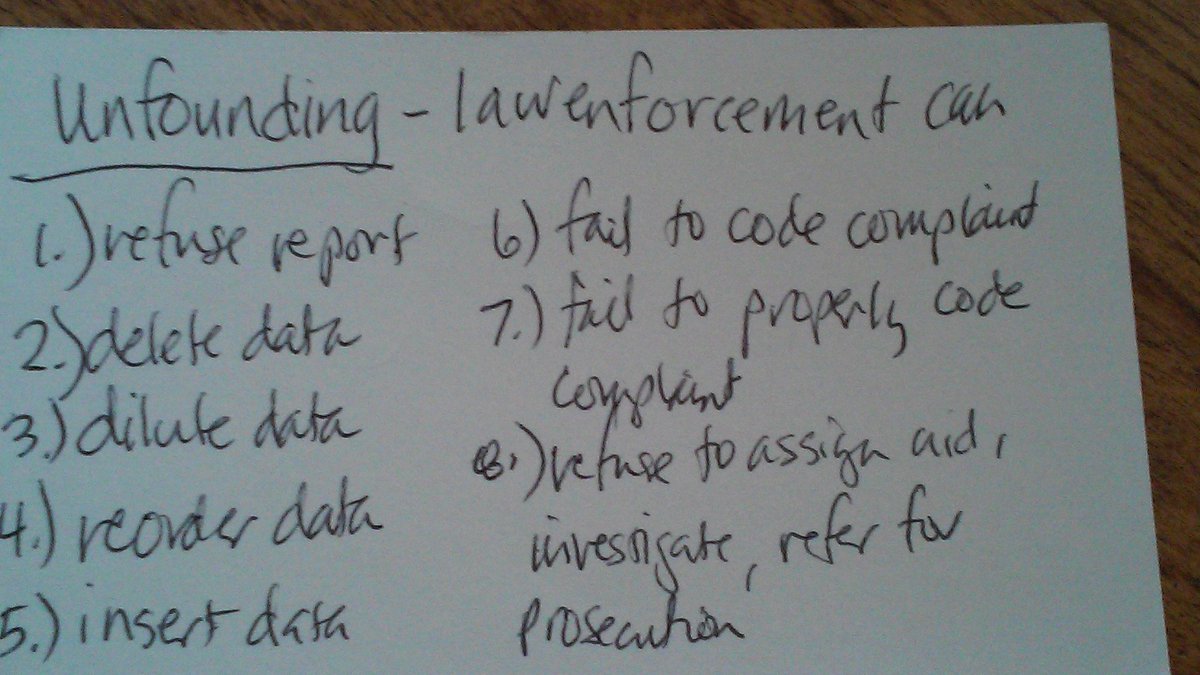 Unfounding - law enforcement can
1.) refuse report
2.) delete data
3.) dilute data
4.) reorder data
5.) insert data
6) fail to code complaint
7.) fail to properly code
complaint
8.) refuse to assign aid,
investigate, refer for
prosecution